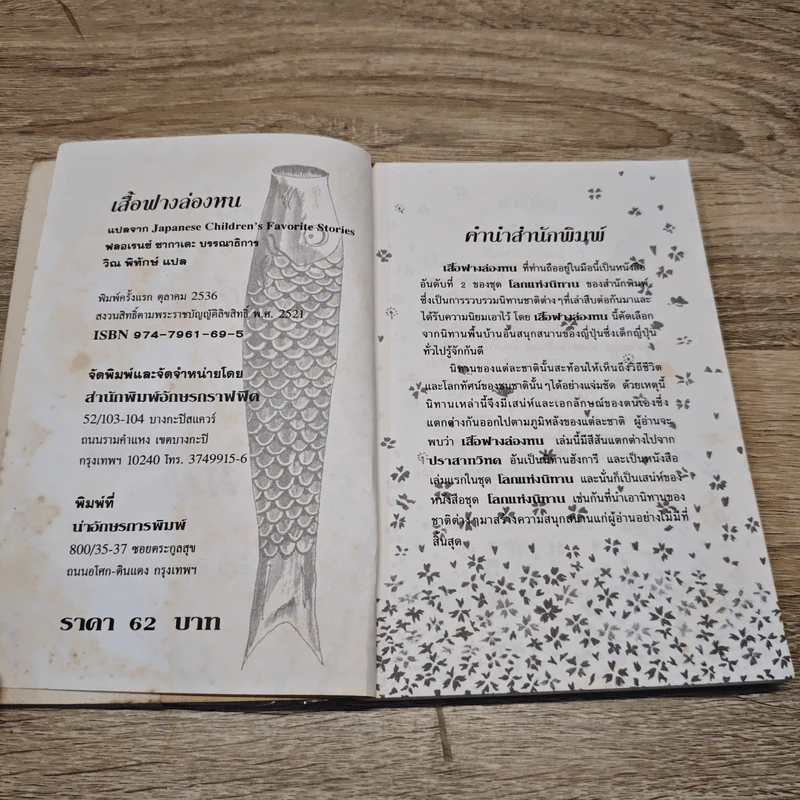 เสื้อฟางล่องหน
แปลจาก Japanese Children's Favorite Stories
ฟลอเรนซ์ ซากาเดะ บรรณาธิการ
วิณ พิทักษ์ แปล
พิมพ์ครั้งแรก ตุลาคม 2536
สงวนสิทธิ์ตามพระราชบัญญัติลิขสิทธิ์ พ.ศ. 2521
ISBN 974-7961-69-5
จัดพิมพ์และจัดจำหน่ายโดย
สำนักพิมพ์อักษรกราฟฟิค
52/103-104 บางกะปิสแควร์
ถนนรามคำแหง เขตบางกะปิ
กรุงเทพฯ 10240 โทร. 3749915-6
พิมพ์ที่
นำอักษรการพิมพ์
800/35-37 ซอยตระกูลสุข
ถนนอโศก-ดินแดง กรุงเทพฯ
ราคา 62 บาท
คำนำสำนักพิมพ์
เสื้อฟางล่องหน ที่ท่านถืออยู่ในมือนี้เป็นหนังสือ
อันดับที่ 2 ของชุด โลกแห่งนิทาน ของสำนักพิมพ์
ซึ่งเป็นการรวบรวมนิทานชาติต่างๆ ที่เล่าสืบต่อกันมาและ
ได้รับความนิยมเอาไว้ โดย เสื้อฟางล่องหน นี้คัดเลือก
จากนิทานพื้นบ้านอันสนุกสนานของญี่ปุ่นซึ่งเด็กญี่ปุ่น
ทั่วไปรู้จักกันดี
นิทานของแต่ละชาตินั้นสะท้อนให้เห็นถึงวิถีชีวิต
และโลกทัศน์ของชนชาตินั้นๆ ได้อย่างแจ่มชัด ด้วยเหตุนี้
นิทานเหล่านี้จึงมีเสน่ห์และเอกลักษณ์ของตนเองซึ่ง
แตกต่างกันออกไปตามภูมิหลังของแต่ละชาติ ผู้อ่านจะ
พบว่า เสื้อฟางล่องหน เล่มนี้มีสีสันแตกต่างไปจาก
ปราสาทวิหค อันเป็นนิทานฮังการี และเป็นหนังสือ
เล่มแรกในชุด โลกแห่งนิทาน และนั่นก็เป็นเสน่ห์ของ
หนังสือชุด โลกแห่งนิทาน เช่นกันที่นำเอานิทานของ
ชาติต่างๆ มาสร้างความสนุกสนานแก่ผู้อ่านอย่างไม่มีที่
สิ้นสุด